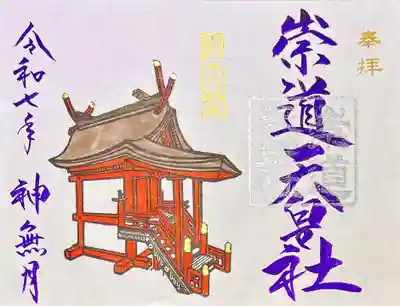 奉拝
崇道天皇社
令和七年
神無月